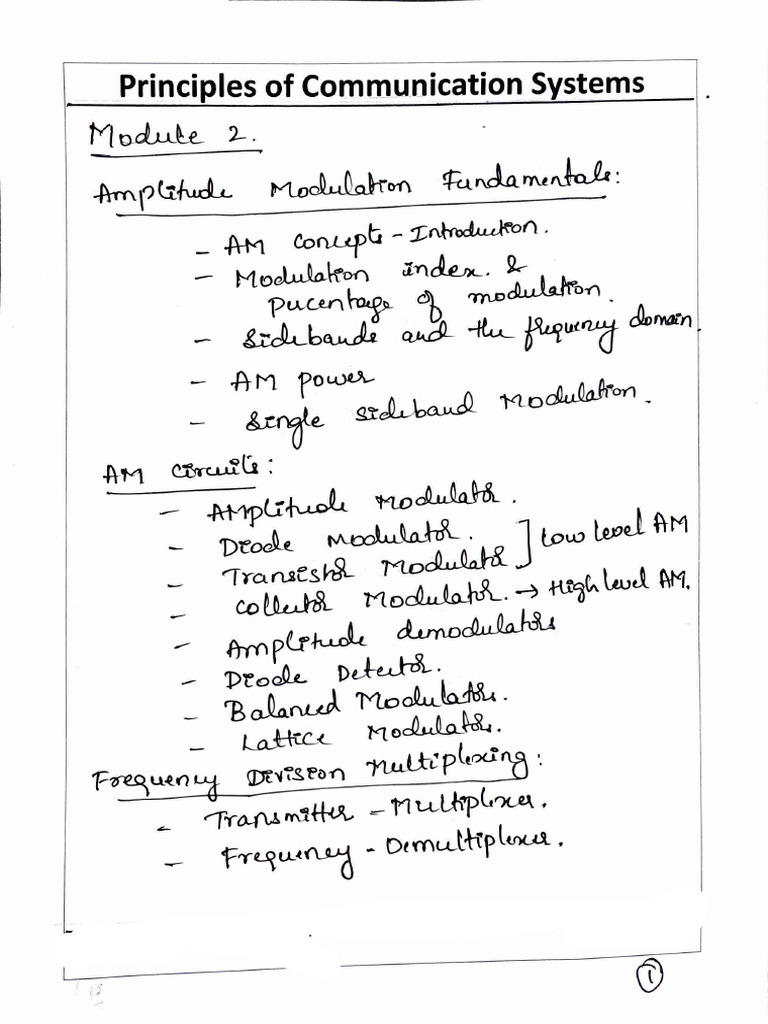 Principles of Communication Systems
Module 2.
Amplitude Modulation Fundamentals:
- AM concepts - Introduction.
- Modulation index. &
Percentage of modulation.
- Sidebands and the frequency domain.
- AM power
- Single sideband Modulation.
AM circuits:
- Amplitude Modulator.
- Diode Modulator.
- Transistor Modulator ] Low level AM
- Collector Modulator. → High level AM.
- Amplitude demodulators
- Diode Detector.
- Balanced Modulators.
- Lattice Modulators.
Frequency Division Multiplexing:
- Transmitter - Multiplexer.
- Frequency - Demultiplexer.
1